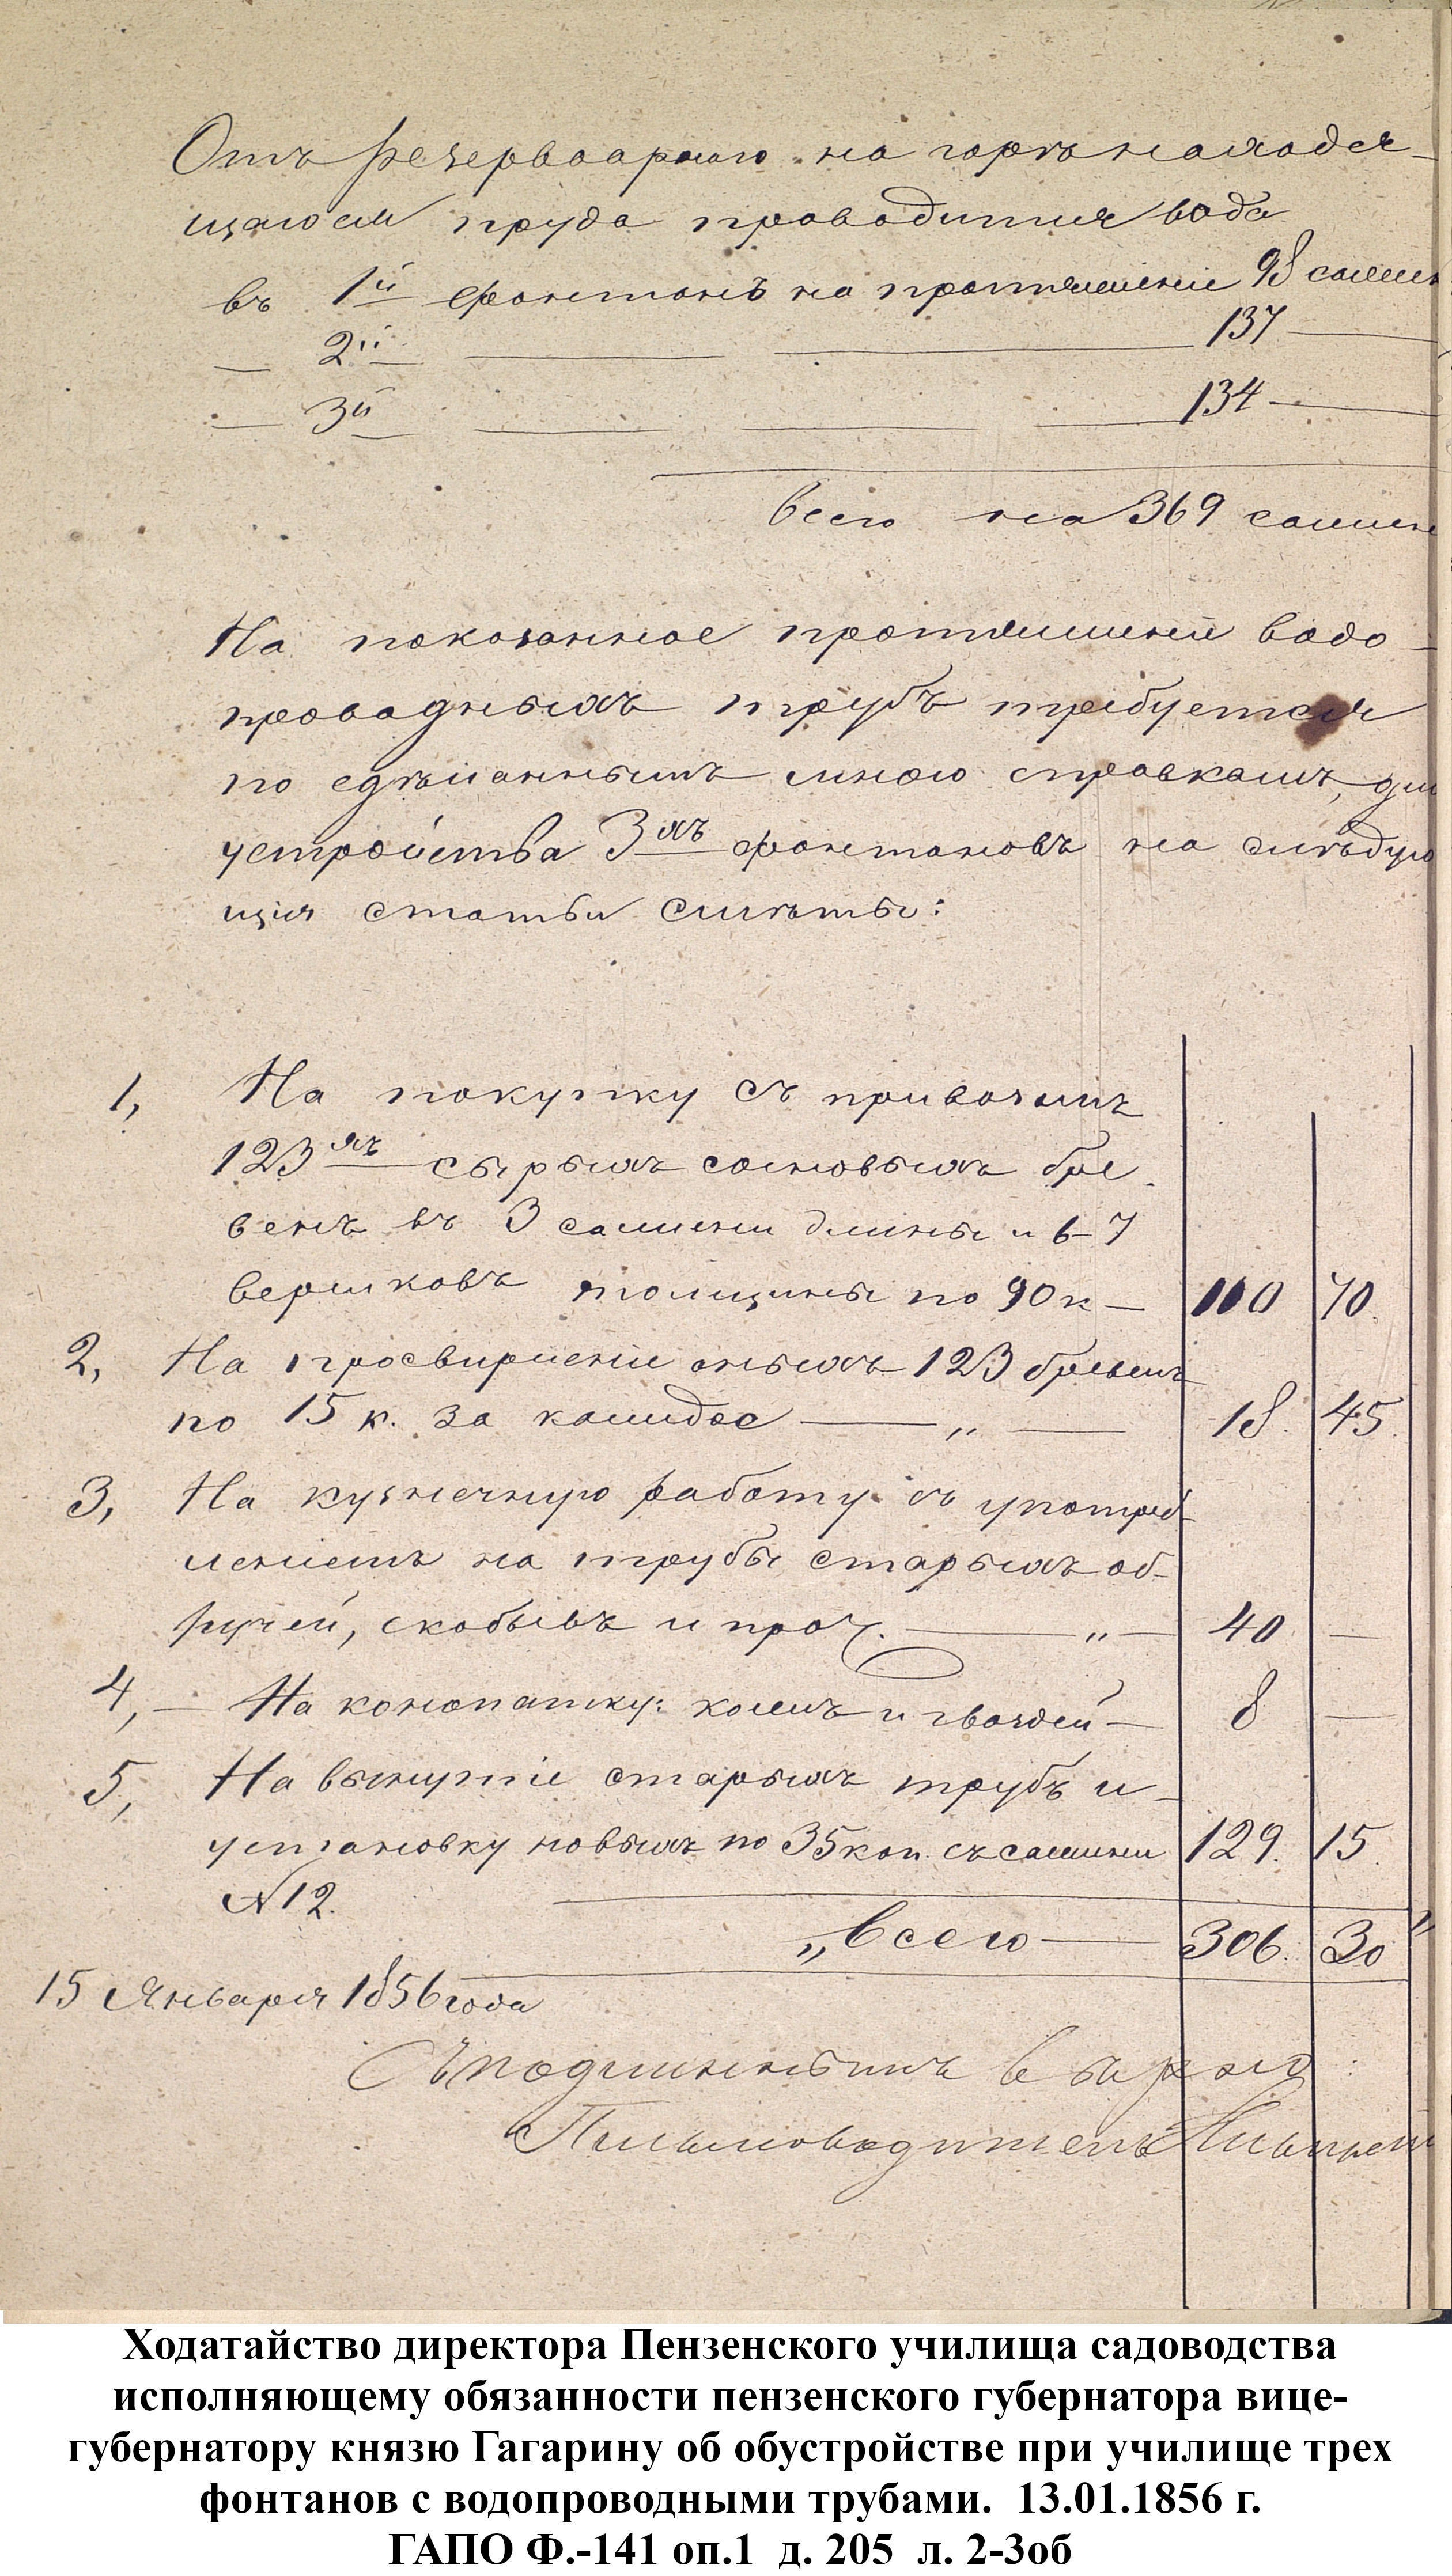 Отъ резервоарного на горѣ находя-
щагося пруда проводится вода
въ 1й фонтанъ на протяженіи 98 сажен
— 2й — — 137 —
— 3й — — — 134 —
всего на 369 сажен
На показанное протяженіе водо-
проводныхъ трубъ требуется
по сдѣланнымъ мною справкамъ, для
устройства 3хъ фонтановъ на слѣдую
щія статьи смѣты:
1, На покупку съ привозомъ
123хъ сырыхъ сосновыхъ бре-
венъ въ 3 сажени длины и 6-7
вершковъ толщины по 90 к — 110 70.
2, На просверленіе оныхъ 123 бревенъ
по 15 к. за каждое — „ — 18. 45.
3, На кузнечную работу съ употреб
леніемъ на трубы старыхъ об-
ручей, скобывъ и проч. — „ — 40 —
4, — На конопатку: комлъ и гвоздей — 8 —
5, На вынутіе старыхъ трубъ и-
установку новыхъ по 35 коп. съ сажени 129. 15.
N 12.
„Всего — 306. 30 „
15 Января 1856 года
Съ подлиннымъ вѣрно:
Письмоводитель
Ходатайство директора Пензенского училища садоводства
исполняющему обязанности пензенского губернатора вице-
губернатору князю Гагарину об обустройстве при училище трех
фонтанов с водопроводными трубами. 13.01.1856 г.
ГАПО Ф.-141 оп.1 д. 205 л. 2-3об